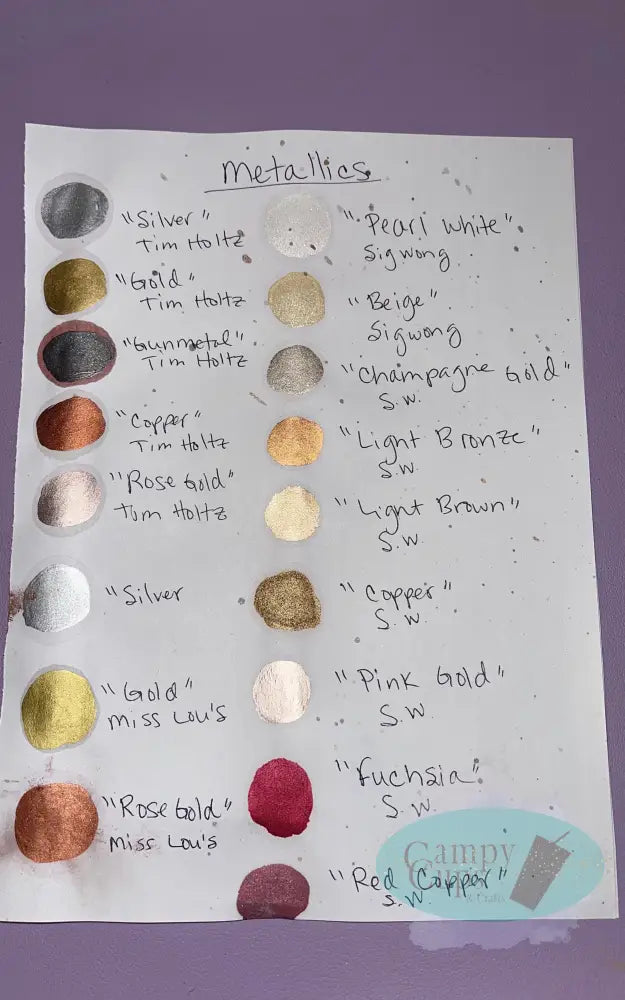 Metallics
"Silver"
Tim Holtz
"Gold"
Tim Holtz
"Gunmetal"
Tim Holtz
"Copper"
Tim Holtz
"Rose Gold"
Tim Holtz
"Silver
"Gold"
Miss Lou's
"Rose Gold"
Miss Lou's
"Pearl White"
Sigwong
"Beige"
Sigwong
"Champagne Gold"
S.W.
"Light Bronze"
S.W.
"Light Brown"
S.W.
"Copper"
S.W.
"Pink Gold"
S.W.
"Fuchsia"
S.W.
"Red Copper"
S.W.
Campy
Cups
& Crafts